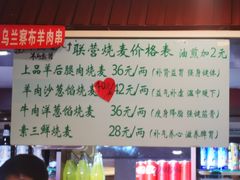 乌兰察布羊肉串
联营烧麦价格表 油煎加2元
上品羊后腿肉烧麦 36元/两 (补肾益胃 强身健体)
羊肉沙葱馅烧麦 42元/两 (益气补虚 温中暖下)
牛肉洋葱馅烧麦 36元/两 (瘦身降脂 强健筋骨)
素三鲜烧麦 28元/两 (补气养心 滋养脾胃)